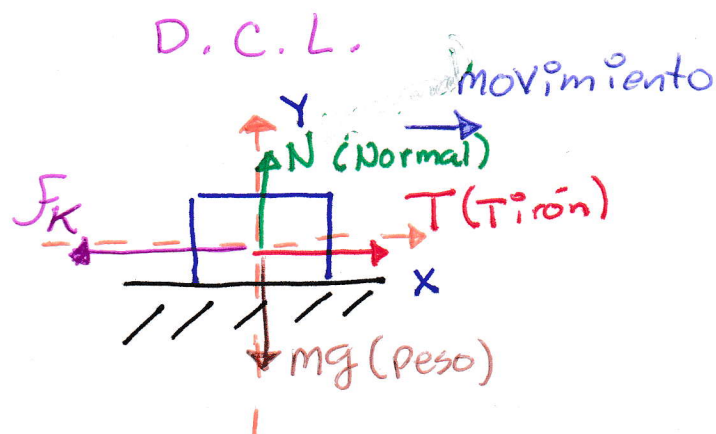 D.C.L.
movimiento
Y
N (Normal)
fK
T (Tirón)
X
mg (peso)